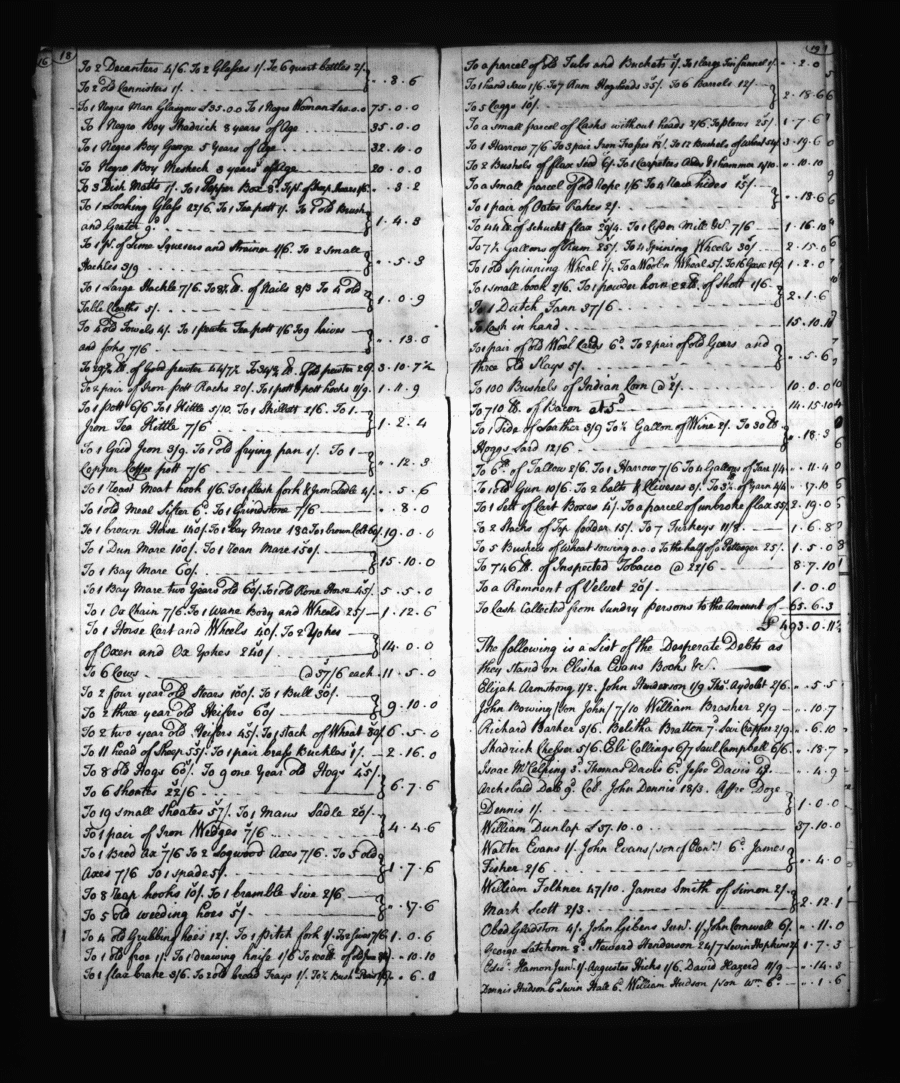 16 18
To 2 Decanters 4/6. To 2 Glasses 1/. To 6 quart bottles 2/.
To 2 old Cannisters 1/. " . 8 . 6
To 1 Negro Man Glasgow £35.0.0 To 1 Negro Woman £40.0.0 75 . 0 . 0
To 1 Negro Boy Shadrick 8 years of Age 35 . 0 . 0
To 1 Negro Boy George 5 years of Age 32 . 10 . 0
To Negro Boy Mesheck 3 years of Age 20 . 0 . 0
To 3 Dish Matts 1/. To 1 Pepper Box 8d. To 1 pr. of Sheep Shears " . 3 . 2
To 1 Looking Glass 22/6. To 1 Tea pott 1/. To 1 old Brush
and Grater 9d. 1 . 4 . 3
To 1 pr. of Lime Squesers and Strainer 1/6. To 2 Small
Hackles 3/9 " . 5 . 3
To 1 Large Hackle 7/6. To lb. of Nails 8/3 To 4 old
Table Cloaths 5/. 1 . 0 . 9
To 4 old Towels 4/. To 1 pewter Tea pott 1/6 To 9 knives
and forks 7/6 " . 13 . 0
To lb. of Good pewter 44/7½ To lb. Old pewter 3 . 10 . 7½
To 2 pair of Iron Pott Racks 20/. To 1 pott & pott hooks 11/9. 1 . 11 . 9
To 1 Pott 6/6 To 1 Kittle 5/10. To 1 Skillett 2/6. To 1
Iron Tea Kittle 7/6 1 . 2 . 4
To 1 Grid Iron 3/9. To 1 old frying pan 1/. To 1
Copper Coffee pott 7/6 " . 12 . 3
To 1 Roast Meat hook 1/6. To 1 flesh fork & Iron Ladle 4/. " . 5 . 6
To 1 old Meal Sifter 6d. To 1 Grindstone 7/6 " . 8 . 0
To 1 brown Horse 140/. To 1 Grey Mare 180 To 1 brown Colt 60/. 19 . 0 . 0
To 1 Dun Mare 100/. To 1 Roan Mare 150/.
To 1 Bay Mare 60/. 15 . 10 . 0
To 1 Bay Mare two Years old 60/. To 1 old Rone Horse 45/. 5 . 5 . 0
To 1 Ox Chain 7/6. To 1 wane Body and Wheels 25/ 1 . 12 . 6
To 1 Horse Cart and Wheels 40/. To 2 Yokes
of Oxen and Ox Yokes 240/ 14 . 0 . 0
To 6 Cows @ 37/6 each 11 . 5 . 0
To 2 four year old Stears 100/. To 1 Bull 30/.
To 2 three year old Heifers 60/ 9 . 10 . 0
To 2 two year old Heifers 45/. To 1 Stack of Wheat 6 . 5 . 0
To 11 head of Sheep 55/. To 1 pair brass Buckles 1/. 2 . 16 . 0
To 8 old Hogs 60/. To 9 one Year old Hogs 45/
To 6 Shoates 22/6 6 . 7 . 6
To 19 small Shoates 57/. To 1 Mans Sadle 20/.
To 1 pair of Iron Wedges 7/6 4 . 4 . 6
To 1 Brod Ax 7/6 To 2 Logwood Axes 7/6. To 5 old
Axes 7/6 To 1 spade 5/. 1 . 7 . 6
To 8 Reap hooks 10/. To 1 bramble Sive 2/6
To 5 old weeding hoes 5/. " . 17 . 6
To 4 old Grubbing hoes 12/. To 1 pitch fork 1/. To 2 7/6 1 . 0 . 6
To 1 old froe 1/. To 1 drawing knife 1/6 To of old " . 10 . 10
To 1 flax brake 3/6. To 2 old bread Trays 1/. To Bush. " . 6 .
19
To a parcel of old Tubs and Buckets To 1 large Tin funnel 1/. " . 2 . 0
To 1 hand saw 1/6. To 7 Ram Hogsheads 35/. To 6 Barrels 12/
To 5 Caggs 10/. 2 . 18 . 6
To a small parcel of Casks without heads 2/6. 25/. 1 . 7 . 6
To 1 Harrow 7/6 To 3 pair Iron Traces To 12 Bushels of 3 . 19 . 6
To 2 Bushels of flax Seed 6/. To 1 Carpeters Adds & 1 hammer 4/10 " . 10 . 10
To a Small parcel of old Rope 1/6 To 4 Raw hides 15/.
To 1 pair of Oster Rakes 2/. " . 18 . 6
To 44 lb. of flax To 1 Cyder Mill &c. 7/6 1 . 16 . 10
To 7½ Gallons of Rum 25/. To 4 Spinning Wheels 30/ 2 . 15 . 0
To 1 old Spinning Wheal 1/. To a Wool Wheal 5/. To 16 Geese 16/. 1 . 2 . 0
To 1 small book 2/6. To 1 powder horn lb. of Shott 1/6.
To 1 Dutch Fann 37/6 2 . 1 . 6
To Cash in hand 15 . 10 .
To 1 pair of old Wool Cards 6d. To 2 pair of old Gears and
three old Slays 5/. " . 5 . 6
To 100 Bushels of Indian Corn @ 2/. 10 . 0 . 0
To 710 lb. of Bacon at 5d 14 . 15 . 10
To 1 Side of Leather 3/9 To ½ Gallon of Wine 2/. To 30 lb.
Hoggs Lard 12/6 " . 18 . 3
To 6 lb. of Tallow 2/6. To 1 Harrow 7/6 To 4 Gallons of Tare 1/4 " . 11 . 4
To 1 old Gun 10/6. To 2 bolts & Cliveses 3/. To 3 lb. of yarn 4/4 " . 17 . 10
To 1 Sett of Cart Boxes 4/. To a parcel of unbroke flax 55/. 2 . 19 . 0
To 2 Stacks of Top fodder 15/. To 7 Turkeys 11/8 1 . 6 . 8
To 5 Bushels of Wheat sowing 0.0.0 To the half of a Pettoger 25/. 1 . 5 . 0
To 746 lb. of Inspected Tobacco @ 22/6 8 . 7 . 10
To a Remnent of Velvet 20/. 1 . 0 . 0
To Cash Collected from Sundry persons to the Amount of 65 . 6 . 3
£ 493 . 0 . 11½
The following is a List of the Desperate Debts as
they Stand on Elisha Evans Books &c.
Elijah Armstrong 1/2. John Henderson 1/9 Thos. Aydelot 2/6. " . 5 . 5
John Bowing (son John) 7/10 William Brasher 2/9 " . 10 . 7
Richard Barker 3/6. Belitha Bratton 7d. Levi Cropper 2/9 " . 6 . 10
Shadrick Chesser 5/6. Eli Collings 6/7 Saul Campbell 6/6 " . 18 . 7
Isaac McCelping 3d. Thomas Davis 6d. Jesse Davis " . 4 . 9
Archibald Dale 9d. Col. John Dennis 18/3. Affre Doze
Dennis 1/. 1 . 0 . 0
William Dunlap £37.10.0 37 . 10 . 0
Walter Evans 1/. John Evans (son of Ebenr.) 6d. James
Fisher 2/6 " . 4 . 0
William Folkner 47/10. James Smith of Simon 2/.
Mark Scott 2/3 2 . 12 . 1
Obed Gladston 4/. John Gibens Junr. 1/. John Cornwell 6/. " . 11 . 0
George Latchom Steward Henderson 24/7 Levin Hopkins 1 . 7 . 3
Hamon Junr. 1/. Augustus Hicks 1/6. David Hazerd 11/9 " . 14 . 3
Dennis Hudson 6d Levin Hall 6d. William Hudson (son Wm. 6d. " . 1 . 6